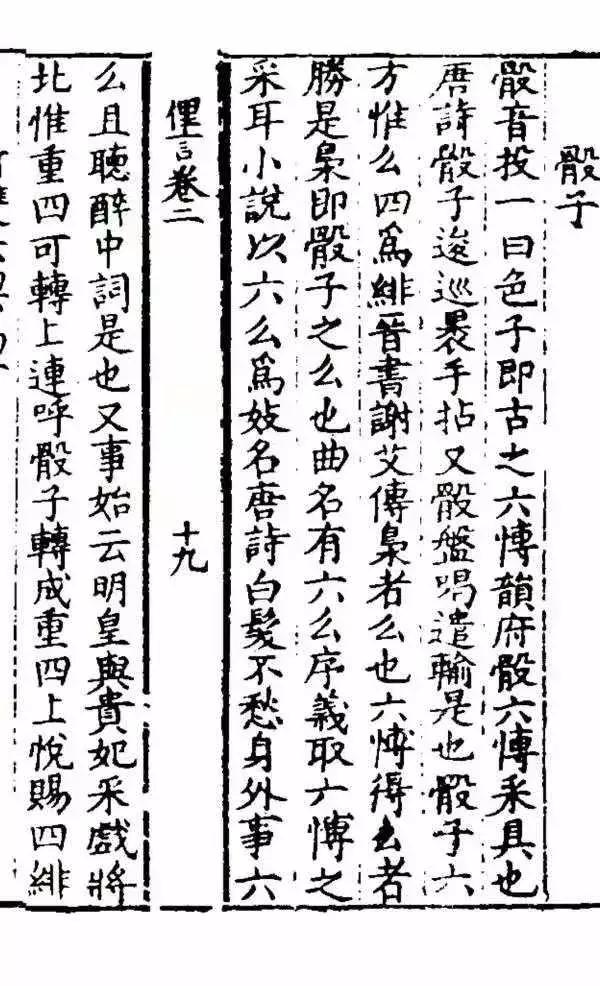 骰子
骰音投一曰色子即古之六愽韻府骰六愽采具也
唐詩骰子逡巡裹手拈又骰盤喝遣輸是也骰子六
方惟么四爲緋晉書謝艾傳梟者么也六愽得么者
勝是梟即骰子之么也曲名有六么序義取六愽之
采耳小說以六么爲妓名唐詩白髮不愁身外事六
俚言卷二
十九
么且聽醉中詞是也又事始云明皇與貴妃采戲將
北惟重四可轉上連呼骰子轉成重四上悅賜四緋